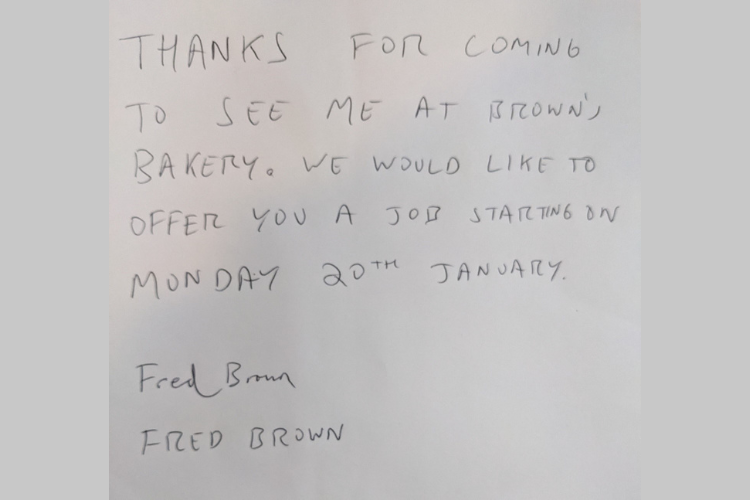 THANKS FOR COMING
TO SEE ME AT BROWN'S
BAKERY. WE WOULD LIKE TO
OFFER YOU A JOB STARTING ON
MONDAY 20TH JANUARY.
Fred Brown
FRED BROWN